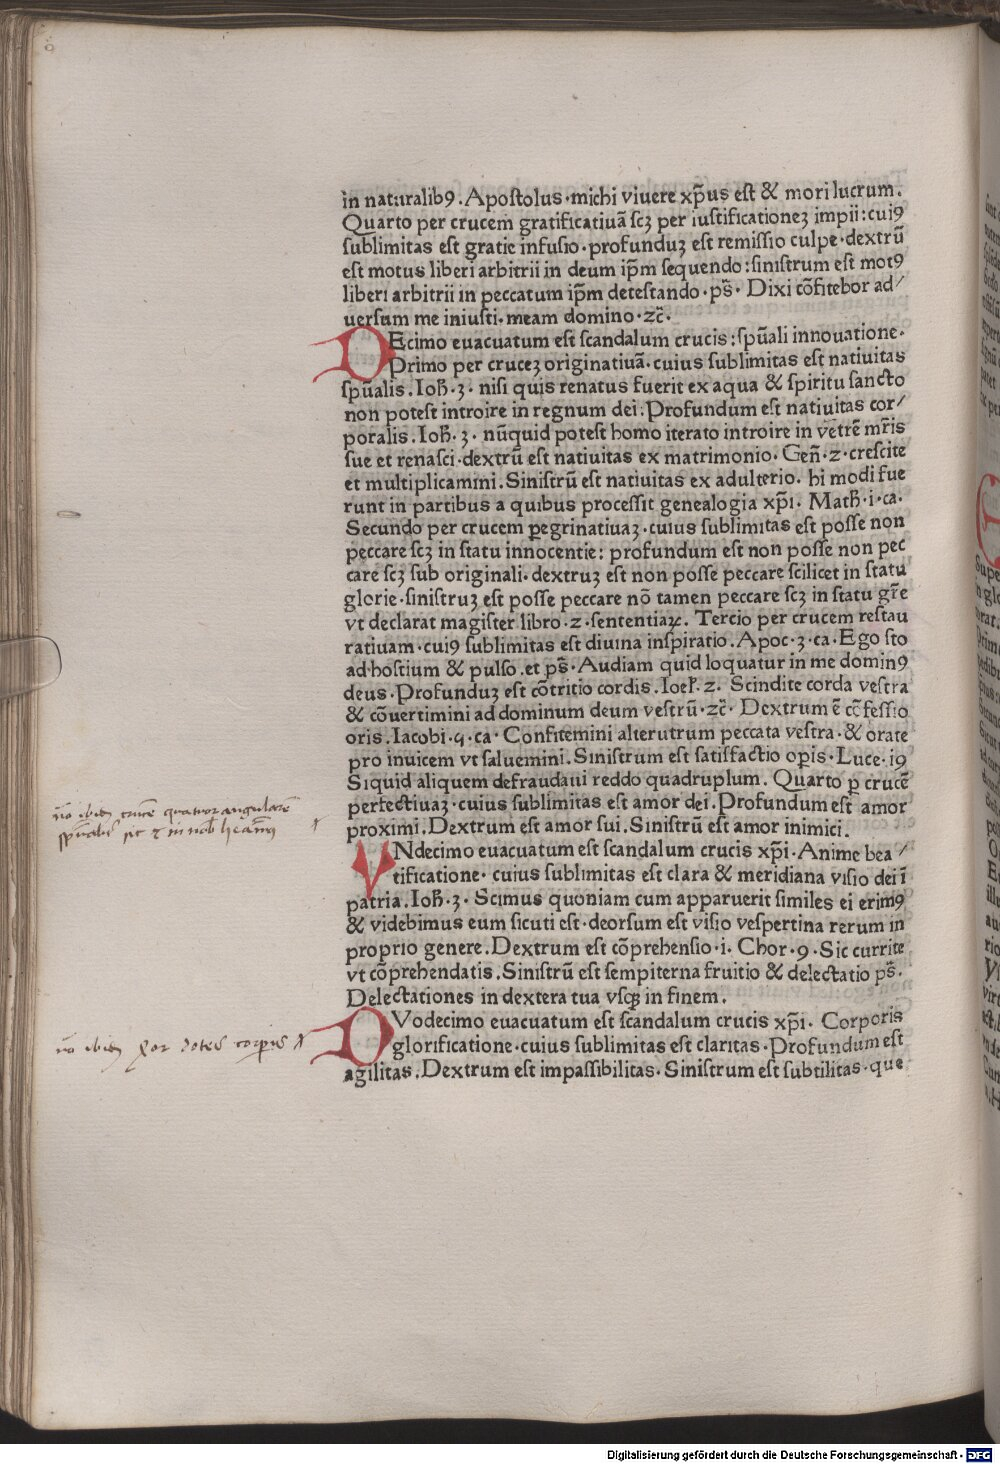 in naturalib9. Apostolus·michi viuere xp̃us est & mori lucrum.
Quarto per crucem gratificatiuã scʒ per iustificationeʒ impii:cui9
sublimitas est gratie infusio·profunduʒ est remissio culpe·dextrũ
est motus liberi arbitrii in deum ip̃m sequendo:sinistrum est mot9
liberi arbitrii in peccatum ip̃m detestando·ps̃· Dixi cõfitebor ad/
uersum me iniusti·meam domino·zc̃·
DEcimo euacuatum est scandalum crucis:sp̃uali innouatione·
Primo per cruceʒ originatiuã·cuius sublimitas est natiuitas
sp̃ualis.Ioh̃·3· nisi quis renatus fuerit ex aqua & spiritu sancto
non potest introire in regnum dei:Profundum est natiuitas cor/
poralis.Ioh̃·3· nũquid potest homo iterato introire in vẽtrẽ mr̃is
sue et renasci·dextrũ est natiuitas ex matrimonio. Geñ·2·crescite
et multiplicamini.Sinistrũ est natiuitas ex adulterio. hi modi fue
runt in partibus a quibus processit genealogia xp̃i. Math̃·i·ca.
Secundo per crucem ꝑegrinatiuaʒ·cuius sublimitas est posse non
peccare scʒ in statu innocentie: profundum est non posse non pec
care scʒ sub originali·dextruʒ est non posse peccare scilicet in statu
glorie·sinistruʒ est posse peccare nõ tamen peccare scʒ in statu gr̃e
vt declarat magister libro·2·sententiaꝝ. Tercio per crucem restau
ratiuam·cui9 sublimitas est diuina inspiratio.Apoc·3·ca·Ego sto
ad hostium & pulso.et ps̃·Audiam quid loquatur in me domin9
deus·Profunduʒ est cõtritio cordis.Ioel̃·2. Scindite corda vestra
& cõuertimini ad dominum deum vestrũ·zc̃· Dextrum ẽ cõfessio
oris.Iacobi·q·ca· Confitemini alterutrum peccata vestra·& orate
pro inuicem vt saluemini.Sinistrum est satisfactio oꝑis·Luce·i9
Siquid aliquem defraudaui reddo quadruplum. Quarto ꝑ crucẽ
perfectiuaʒ·cuius sublimitas est amor dei.Profundum est amor
proximi.Dextrum est amor sui.Sinistrũ est amor inimici.
VNdecimo euacuatum est scandalum crucis xp̃i·Anime bea/
tificatione· cuius sublimitas est clara & meridiana visio dei ĩ
patria.Ioh̃·3· Scimus quoniam cum apparuerit similes ei erim9
& videbimus eum sicuti est·deorsum est visio vespertina rerum in
proprio genere.Dextrum est cõprehensio·i·Chor·9·Sic currite
vt cõprehendatis.Sinistrũ est sempiterna fruitio & delectatio ps̃.
Delectationes in dextera tua vsqꝫ in finem.
DVodecimo euacuatum est scandalum crucis xp̃i· Corporis
glorificatione·cuius sublimitas est claritas·Profundum est
agilitas.Dextrum est impassibilitas·Sinistrum est subtilitas·que
quatuor angularẽ
dotes corporis
Digitalisierung gefördert durch die Deutsche Forschungsgemeinschaft - DFG